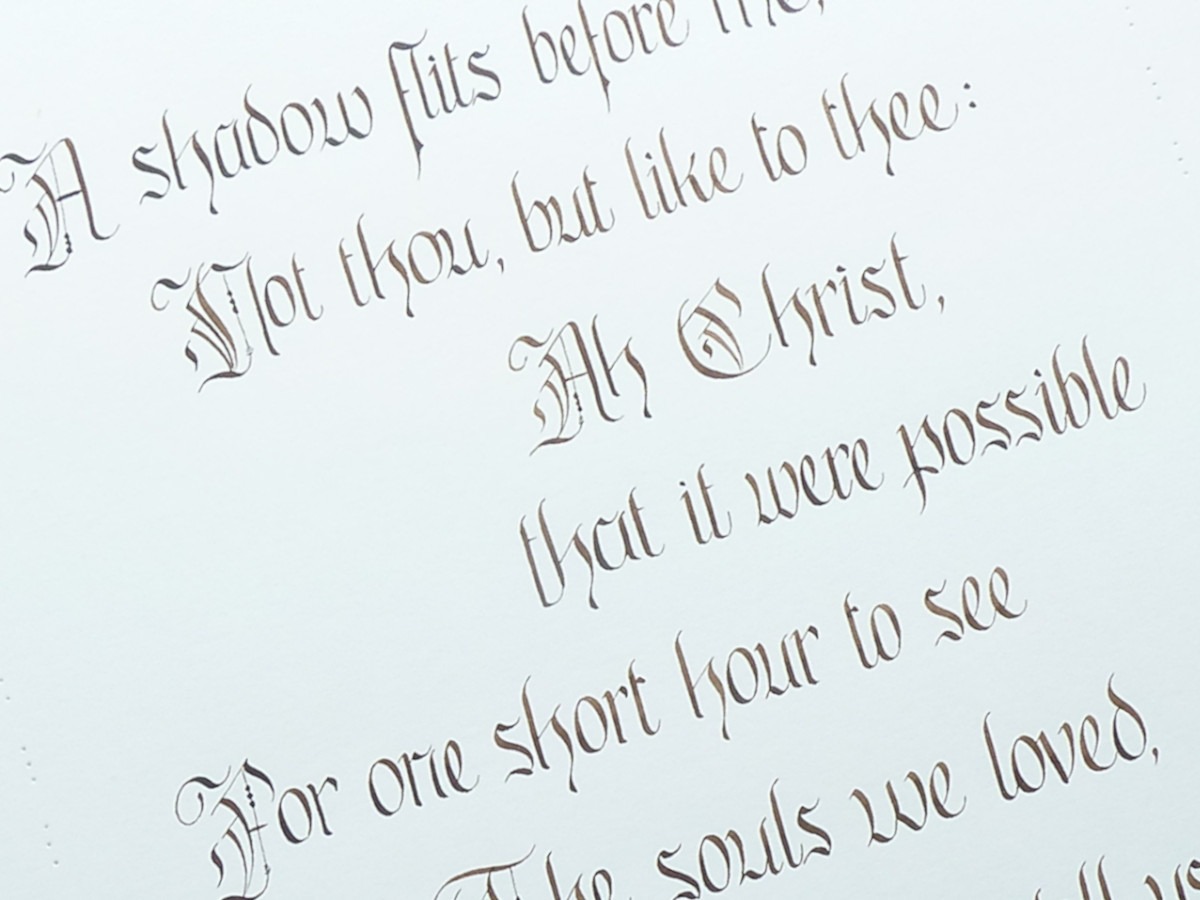 A shadow flits before me,
Not thou, but like to thee:
Ah Christ,
that it were possible
For one short hour to see
The souls we loved,